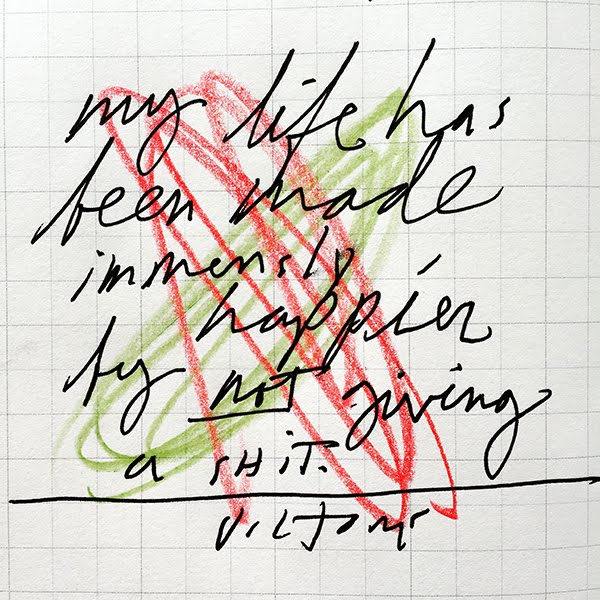 my life has
been made
immensly
happier
by not giving
a SHiT.